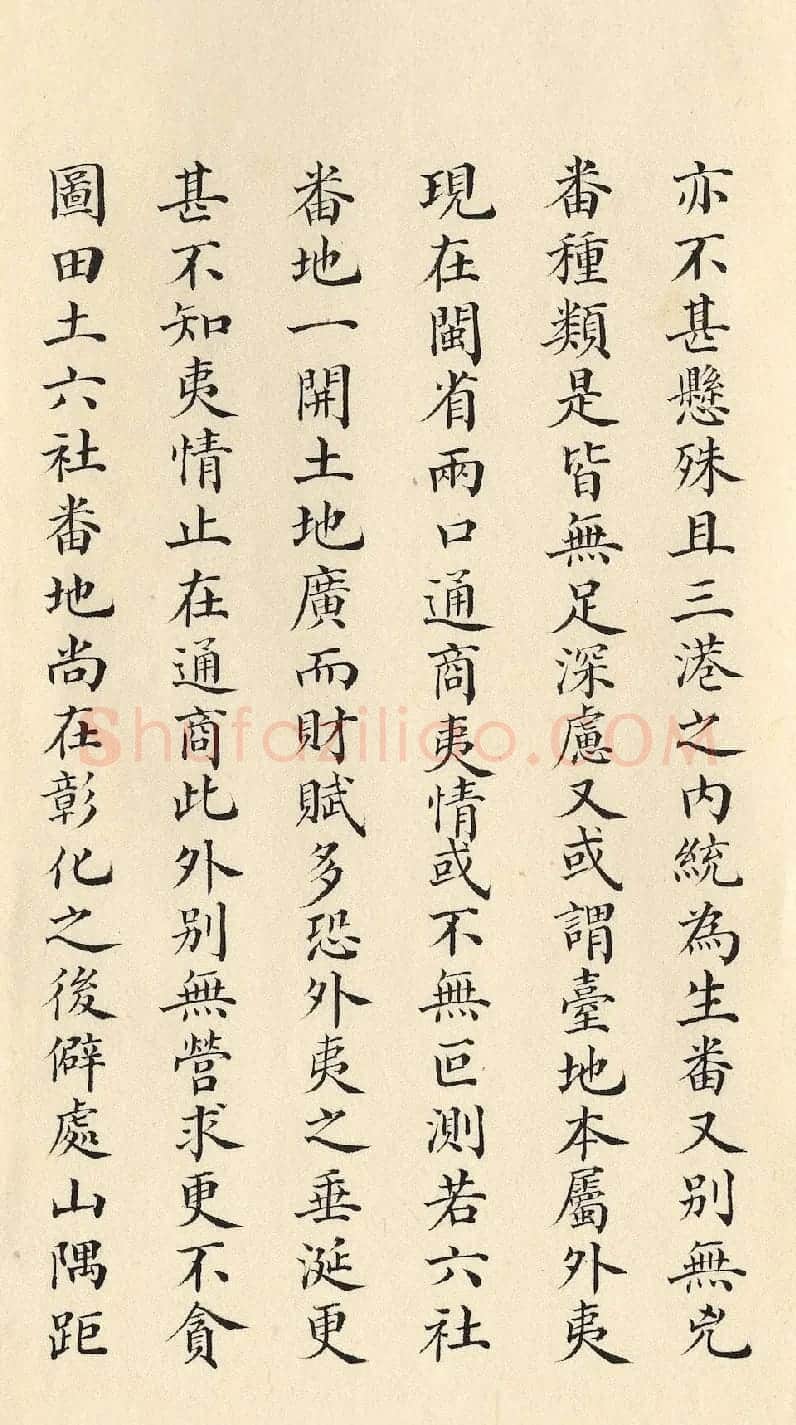 亦不甚懸殊且三港之內統為生番又別無兇
番種類是皆無足深慮又或謂臺地本屬外夷
現在閩省兩口通商夷情或不無叵測若六社
番地一開土地廣而財賦多恐外夷之垂涎更
甚不知夷情止在通商此外別無營求更不貪
圖田土六社番地尚在彰化之後僻處山隅距
Shufaziliao.COM